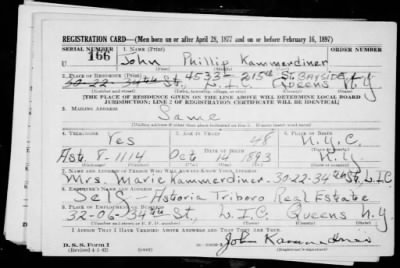 REGISTRATION CARD—(Men born on or after April 28, 1877 and on or before February 16, 1897)
SERIAL NUMBER 1. NAME (Print) ORDER NUMBER
U 166 John Phillip Kammerdiner
2. PLACE OF RESIDENCE (Print) 4533-215th St. BAYSIDE
30-22-34th St. L.I.C. Queens N.Y
[THE PLACE OF RESIDENCE GIVEN ON THE LINE ABOVE WILL DETERMINE LOCAL BOARD
JURISDICTION; LINE 2 OF REGISTRATION CERTIFICATE WILL BE IDENTICAL]
3. MAILING ADDRESS
Same
4. TELEPHONE 5. AGE IN YEARS 6. PLACE OF BIRTH
Yes 48 N.Y.C.
DATE OF BIRTH
Ast. 8-1114 Oct 14 1893 N.Y
7. NAME AND ADDRESS OF PERSON WHO WILL ALWAYS KNOW YOUR ADDRESS
Mrs. Marie Kammerdiner. 30-22-34th St. L.I.C
8. EMPLOYER'S NAME AND ADDRESS
Self - Astoria Triboro Real Estate
9. PLACE OF EMPLOYMENT OR BUSINESS
32-06-34th St., L.I.C. Queens N.Y
I AFFIRM THAT I HAVE VERIFIED ABOVE ANSWERS AND THAT THEY ARE TRUE.
D. S. S. Form 1
(Revised 4-1-42)
John Kammerdiner